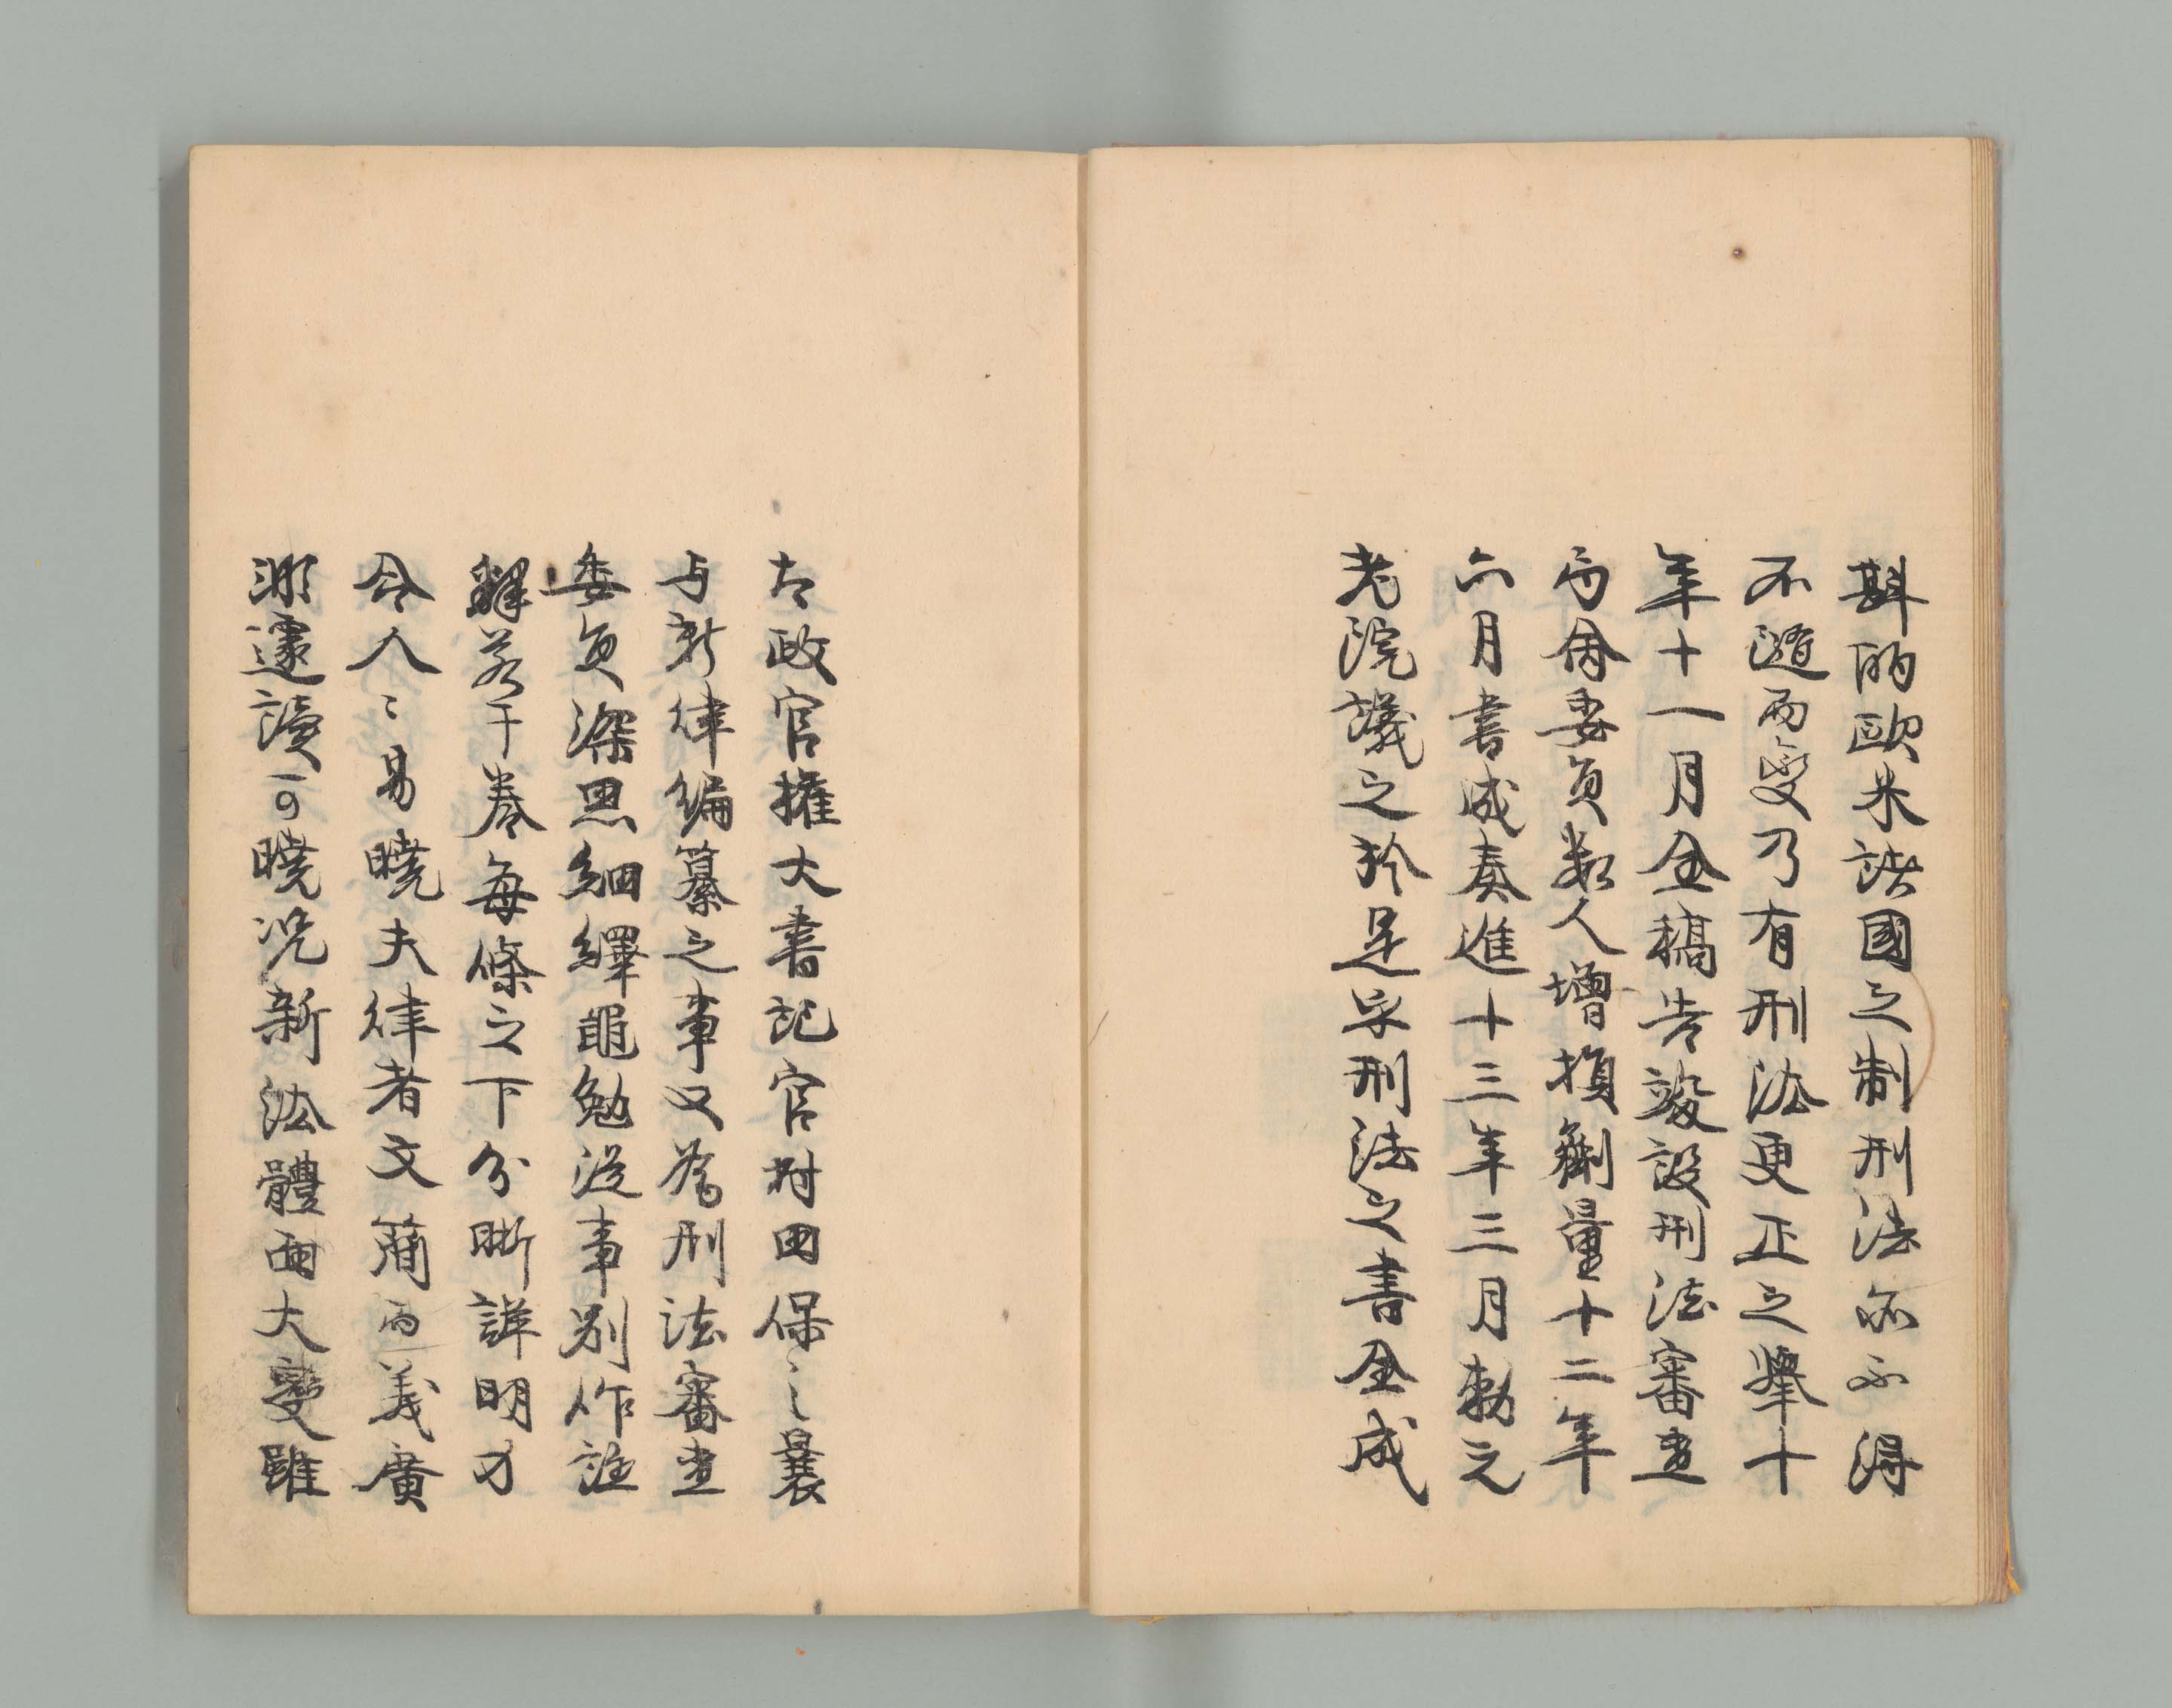 斟酌歐米諸國之制刑法亦不得
不隨而變乃有刑法更正之擧十
年十一月全稿告竣設刑法審查
局命委員數人增損劑量十二年
六月書成奏進十三年三月勅元
老院議之於是乎刑法之書全成
太政官權大書記官村田保之曩
与新律編纂之事又爲刑法審查
委員深思細繹黽勉從事別作註
釋若干卷每條之下分晰詳明力
令人々易曉夫律者文簡而義廣
非遽讀可曉况新法體面大變雖